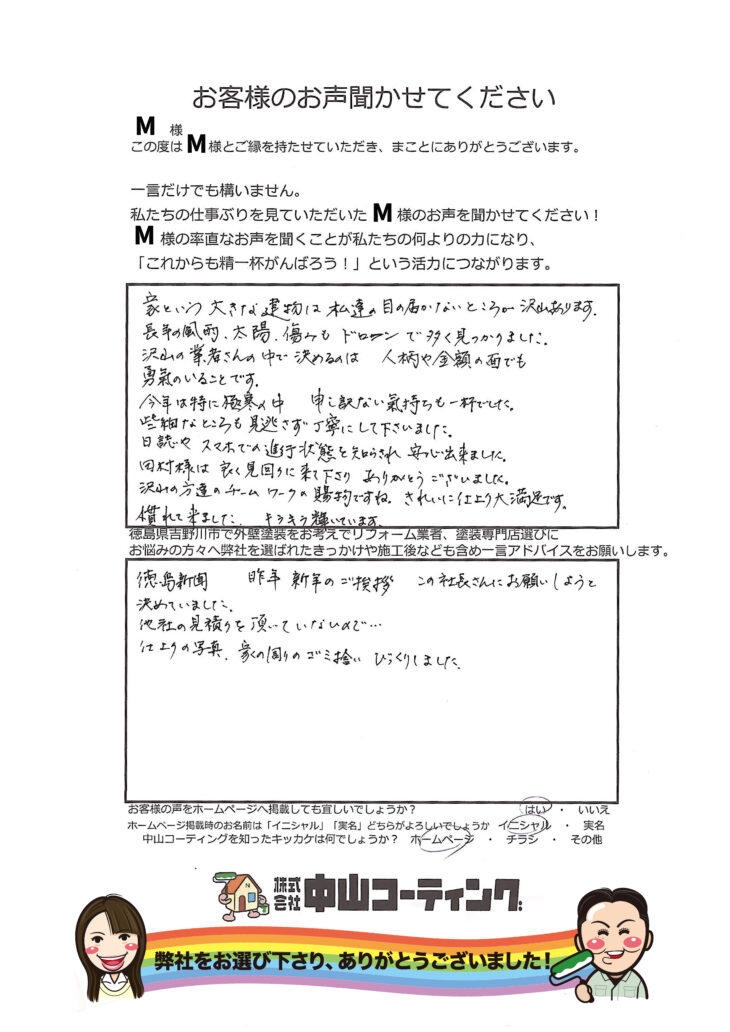 お客様のお声聞かせてください
M 様
この度はM様とご縁を持たせていただき、まことにありがとうございます。
一言だけでも構いません。
私たちの仕事ぶりを見ていただいたM様のお声を聞かせてください！
M様の率直なお声を聞くことが私たちの何よりの力になり、
「これからも精一杯がんばろう！」という活力につながります。
家という大きな建物は私達の目の届かないところが沢山あります。
長年の風雨、太陽、傷みもドローンで多く見つかりました。
沢山の業者さんの中で決めるのは 人柄や金額の面でも
勇氣のいることです。
今年は特に極寒の中 申し訳ない氣持ちも一杯でした。
些細なところも見逃さず丁寧にして下さいました。
日誌やスマホでの進行状態を知らされ安心出来ました。
田村様は良く見回りに来て下さり ありがとうございました。
沢山の方達のチームワークの賜物ですね。きれいに仕上り大満足です。
慣れて来ました。 キラキラ輝いています。
徳島県吉野川市で外壁塗装をお考えでリフォーム業者、塗装専門店選びに
お悩みの方々へ弊社を選ばれたきっかけや施工後なども含め一言アドバイスをお願いします。
徳島新聞 昨年 新年のご挨拶 この社長さんにお願いしようと
決めていました。
他社の見積りを頂いていないので…
仕上りの写真、家の周りのゴミ捨い びっくりしました。
お客様の声をホームページへ掲載しても宜しいでしょうか？ はい ・ いいえ
ホームページ掲載時のお名前は「イニシャル」「実名」どちらがよろしいでしょうか イニシャル ・ 実名
中山コーティングを知ったキッカケは何でしょうか？ ホームページ ・ チラシ ・ その他
N 株式会社 中山コーティング
弊社をお選び下さり、ありがとうございました！